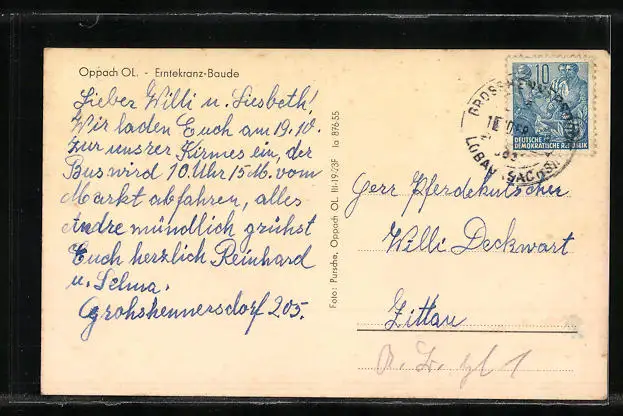 Oppach OL. - Erntekranz-Baude
Lieber Willi u. Liesbeth!
Wir laden Euch am 19.10.
zur unsrer Kirmes ein, der
Bus wird 10 Uhr 15 M. vom
Markt abfahren, alles
Andre mündlich grühst
Euch herzlich Reinhard
u. Selma.
Grohshennersdorf 205.
Foto: Pursche, Oppach OL. III-19/23F Ia 876 55
10
DEUTSCHE
DEMOKRATISCHE REPUBLIK
LÖBAU (SACHS)
Herr Pferdekutscher
Willi Deckwart
Zittau